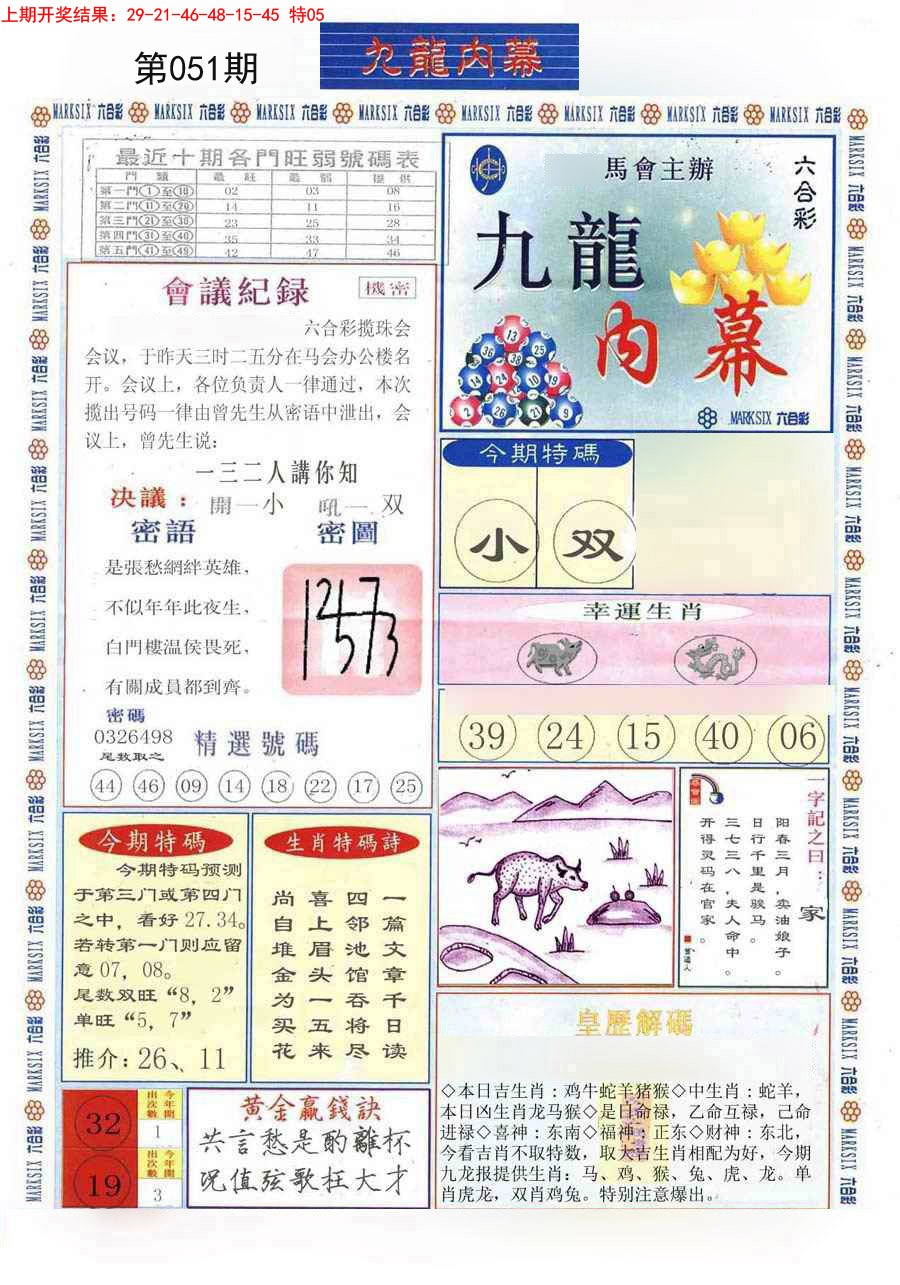 上期开奖结果：29-21-46-48-15-45 特05
第051期
九龍内幕
MARKSIX 六合彩 MARKSIX 六合彩 MARKSIX 六合彩 MARKSIX 六合彩 MARKSIX 六合彩 MARKSIX 六合彩 MARKSIX 六合彩 MARKSIX 六合彩
最近十期各門旺弱號碼表
門 類 最 旺 最 弱 提 供
第一門①至⑩ 02 03 08
第二門⑪至⑳ 14 11 16
第三門㉑至㉚ 23 25 28
第四門㉛至㊵ 35 33 34
第五門㊶至㊾ 42 47 46
會議紀録
機密
六合彩揽珠会
会议，于昨天三时二五分在马会办公楼名
开。会议上，各位负责人一律通过，本次
揽出号码一律由曾先生从密语中泄出，会
议上，曾先生说：
一三二人講你知
决議：開一小 吼一双
密語
密圖
是張愁網絆英雄，
不似年年此夜生，
白門樓温侯畏死，
有關成員都到齊。
密碼
0326498
尾数取之
精選號碼
44 46 09 14 18 22 17 25
馬會主辦
六合彩
九龍
内幕
13
36 38 25
14 24 10 19
2 26 21 9
MARKSIX 六合彩
今期特碼
小 双
幸運生肖
39 24 15 40 06
今期特碼
今期特码预测
于第三门或第四门
之中，看好27.34。
若转第一门则应留
意07，08。
尾数双旺“8，2”
单旺“5，7”
推介：26、11
生肖特碼詩
一篇文章千日读
四邻池馆吞将尽
喜上眉头一五来
尚自堆金为买花
一字記之曰：家
阳春三月，卖油娘子。
日行千里是骏马。
三七三八，夫人命中。
开得灵码在官家。
32
今年開出次數
1
19
今年開出次數
3
黄金赢錢訣
共言愁是酌離杯
况值弦歌枉大才
皇歷解碼
◇本日吉生肖：鸡牛蛇羊猪猴◇中生肖：蛇羊，
本日凶生肖龙马猴◇是日命禄，乙命互禄，己命
进禄◇喜神：东南◇福神：正东◇财神：东北，
今看吉肖不取特数，取大吉生肖相配为好，今期
九龙报提供生肖：马、鸡、猴、兔、虎、龙。单
肖虎龙，双肖鸡兔。特别注意爆出。